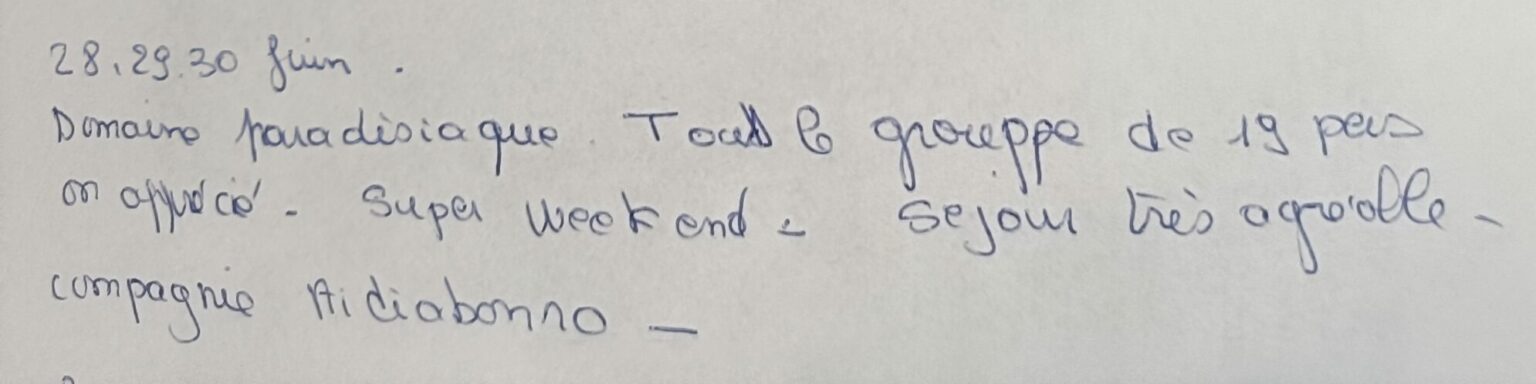 28.29.30 Juin.
Domaine paradisiaque. Tout le grouppe de 19 pers
on apprécié - Super Week end - Sejour très agréable -
compagnie Aidiabonno -